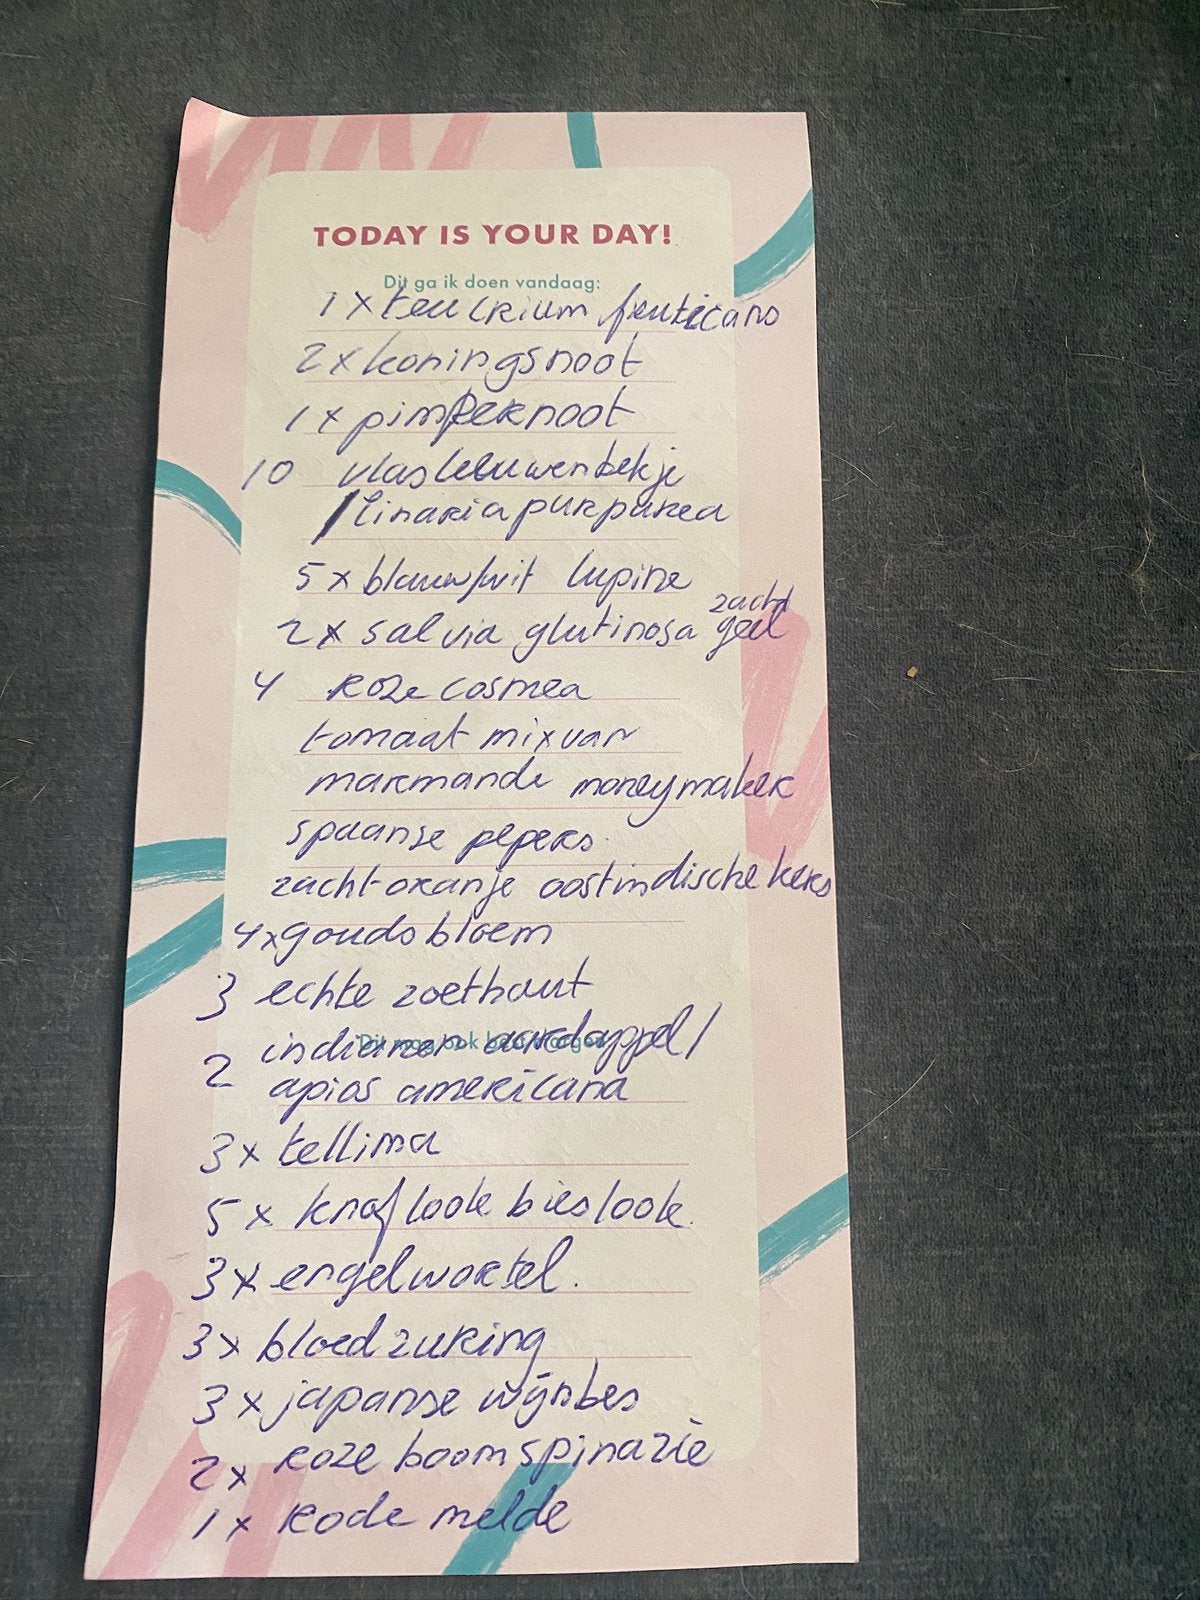 TODAY IS YOUR DAY!
Dit ga ik doen vandaag:
1 x teucrium fruticans
2 x koningsnoot
1 x pimpernoot
10 vlasleeuwenbekje
/linaria purpurea
5 x blauw/wit lupine
zacht
2x salvia glutinosa geel
4 roze cosmea
tomaat mix van
marmande moneymaker
spaanse pepers.
zacht oranje oostindische kers
4x goudsbloem
3 echte zoethout
indianen aardappel/
2 apios americana
3 x tellima
5 x knoflook bieslook.
3 x engelwortel.
3 x bloedzuring
3 x japanse wijnbes
2 x roze boomspinazie
1 x Rode melde